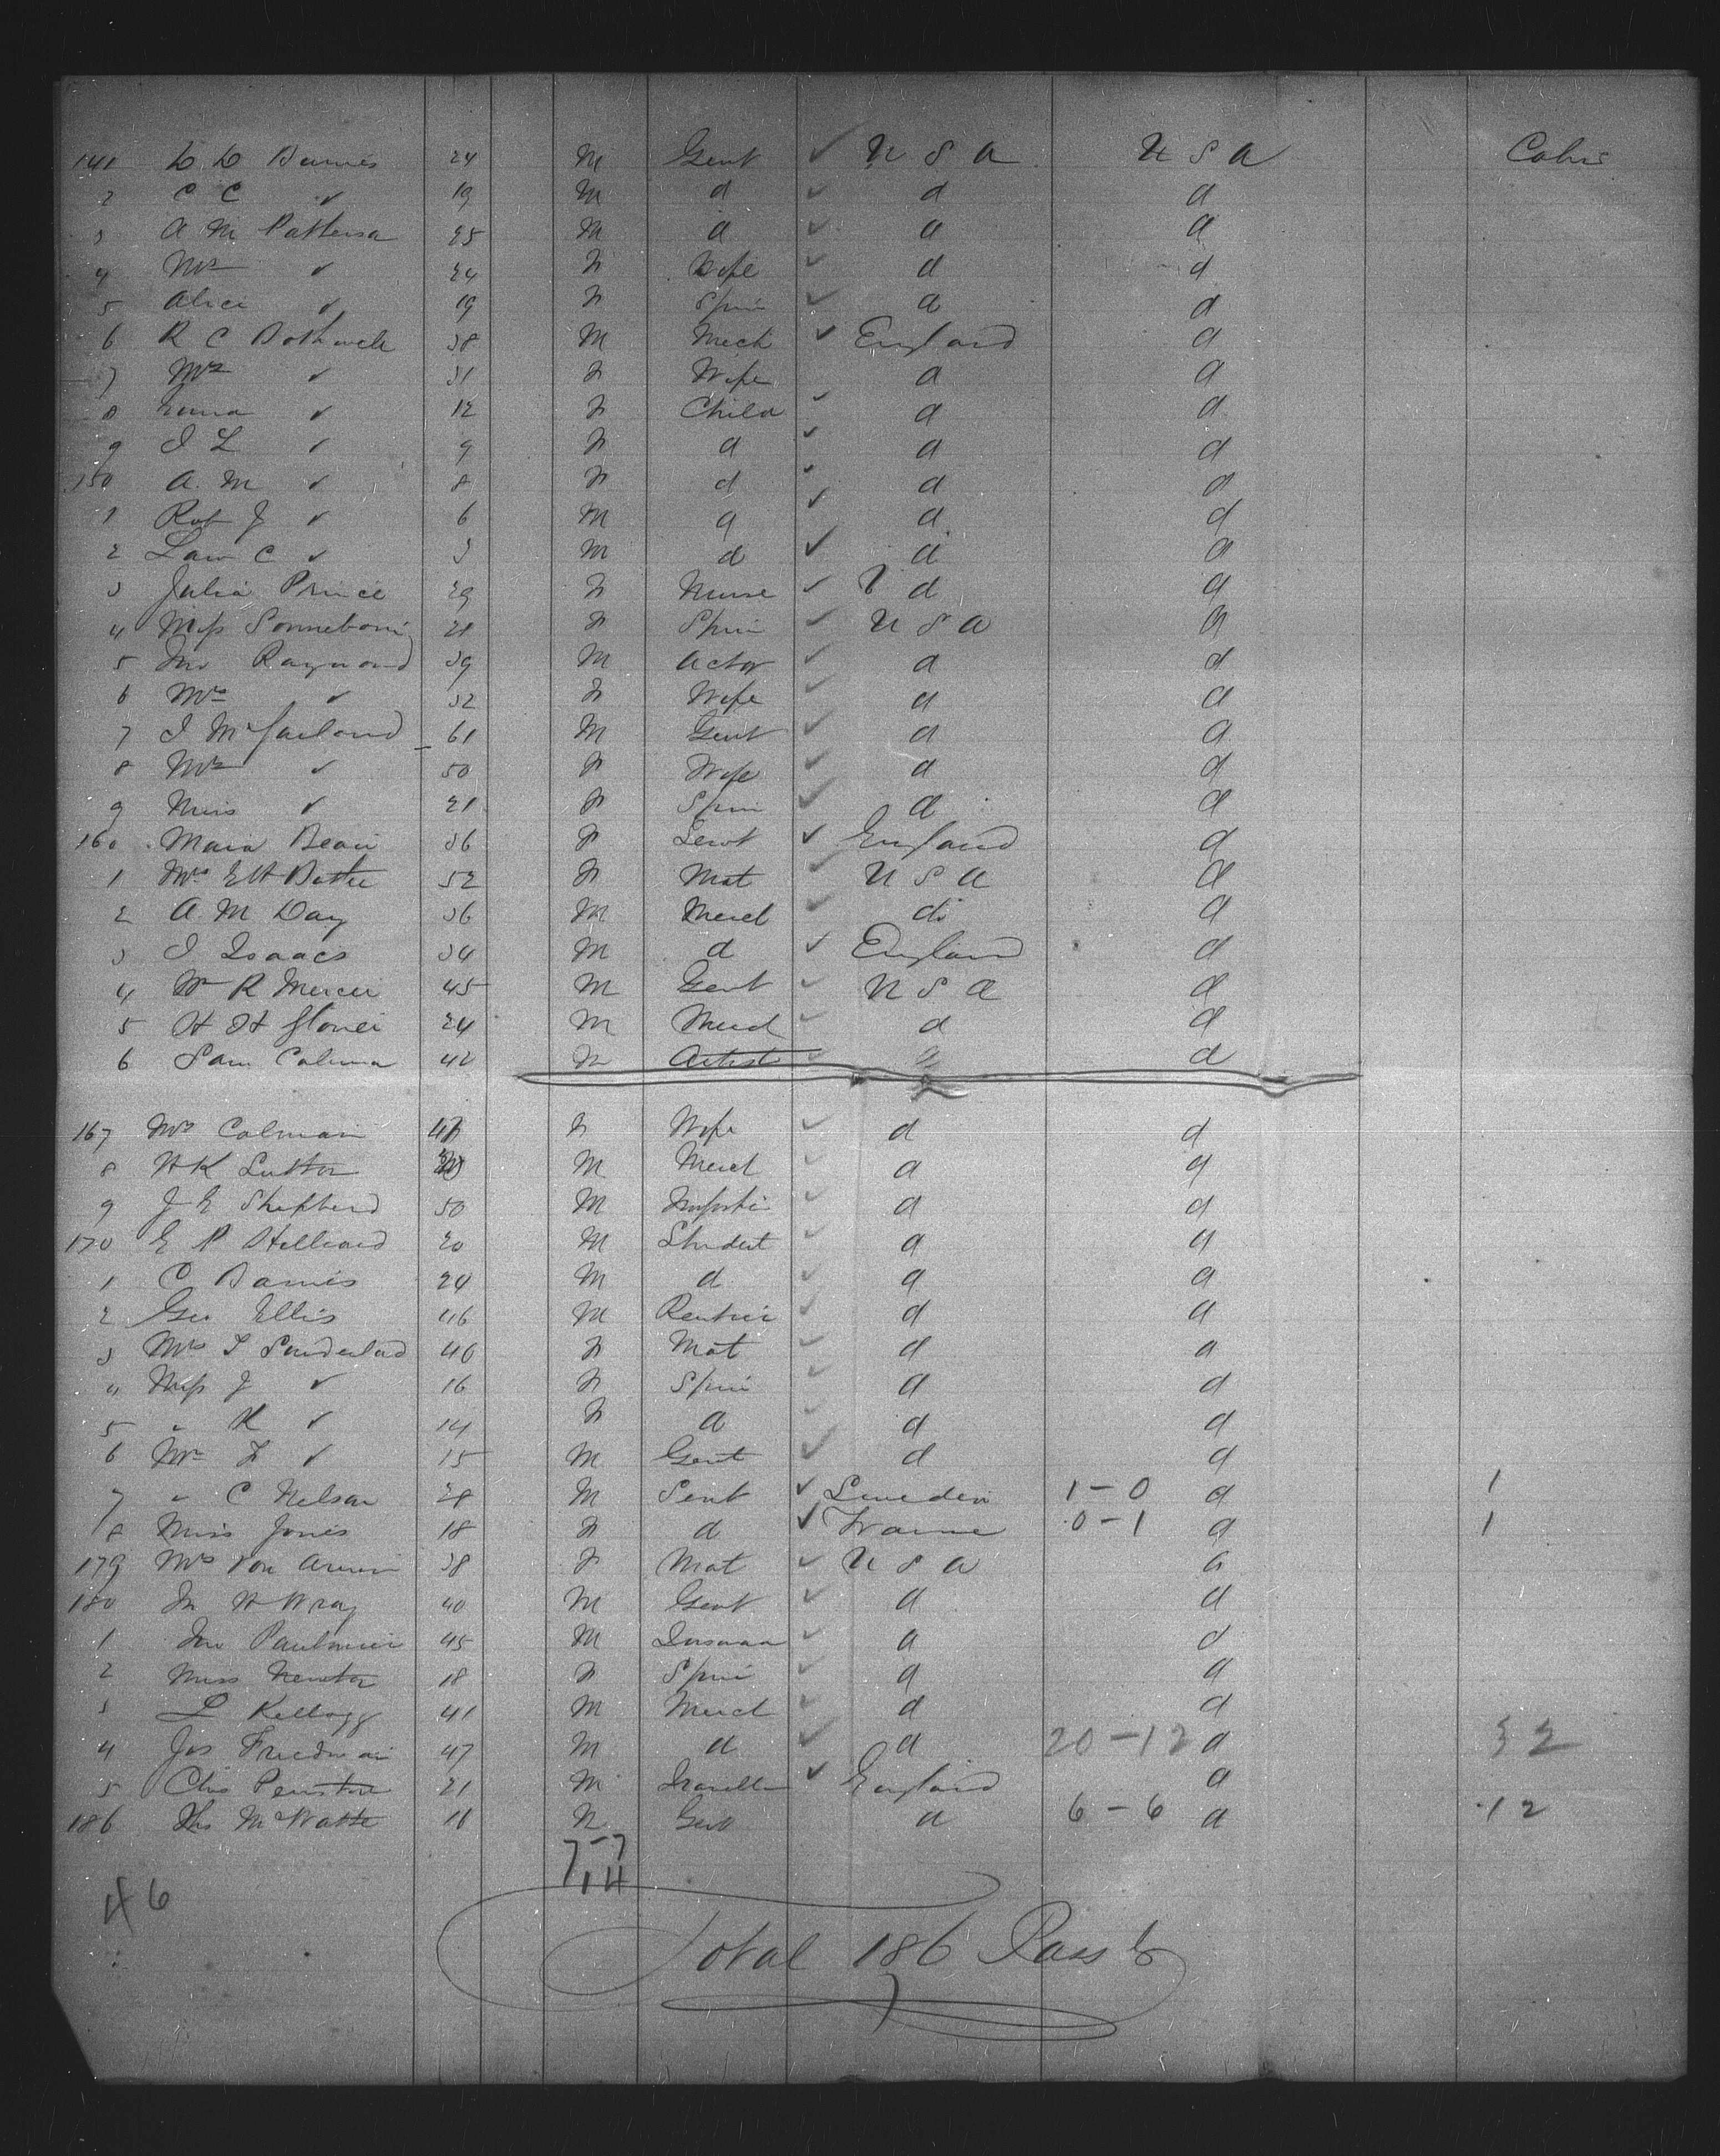 141 L L Barnes 24 M Gent ✓ U S A U S A Cabin
2 C C ✓ 19 M d ✓ d d
3 A M Patterson 25 M d ✓ d d
4 Mrs ✓ 24 F Wife ✓ d d
5 Alice ✓ 19 F Spin ✓ d d
6 R C Bothwell 38 M Mech ✓ England d
7 Mrs ✓ 31 F Wife d d
8 Emma ✓ 12 F Child ✓ d d
9 I L ✓ 9 F d ✓ d d
150 A. M ✓ 8 F d ✓ d d
1 Rob J ✓ 6 M d ✓ d d
2 Law C ✓ 3 M d ✓ d d
3 Julia Prince 29 F Nurse ✓ d d
4 Miss Sonneborn 21 F Spin ✓ U S A d
5 Jno Raymond 39 M Actor ✓ d d
6 Mrs ✓ 32 F Wife ✓ d d
7 I McFarland 61 M Gent ✓ d d
8 Mrs ✓ 50 F Wife ✓ d d
9 Miss ✓ 21 F Spin ✓ d d
160 Maria 36 F Servt ✓ England d
1 Mrs E H 52 F Mat ✓ U S A d
2 A. M Day 36 M Merct ✓ do d
3 I Isaacs 34 M d ✓ England d
4 Wm R Mercer 45 M Gent ✓ U S A d
5 H H Glover 24 M Merct ✓ d d
6 Sam Colman 42 M Artist ✓ d d
167 Mrs Colman F Wife ✓ d d
8 H K M Merct ✓ d d
9 J E Shepherd 50 M Importer ✓ d d
170 E P Hilliard 20 M Student ✓ d d
1 C Barnes 24 M d ✓ d d
2 Geo Ellis 46 M Rentier ✓ d d
3 Mrs L Sunderland 40 F Mat ✓ d d
4 Miss J ✓ 16 F Spin ✓ d d
5 " H ✓ 14 F d ✓ d d
6 Mr L ✓ 15 M Gent ✓ d d
7 " C Nelson 28 M Servt ✓ Sweden 1-0 d 1
8 Miss Jones 18 F d ✓ France 0-1 d 1
179 Mrs Von Arnim 38 F Mat ✓ U S A d
180 Jn H Wray 40 M Gent ✓ d d
1 Jno 45 M ✓ d d
2 Miss Newton 18 F Spin ✓ d d
3 L Kellogg 41 M Merct ✓ d d
4 Jos Friedman 47 M d ✓ d 20-12 d 32
5 Chs 21 M Traveller ✓ England d
186 Ths McWatte 18 M Gent d 6-6 d 12
7-7
14
46
Total 186 Passgs